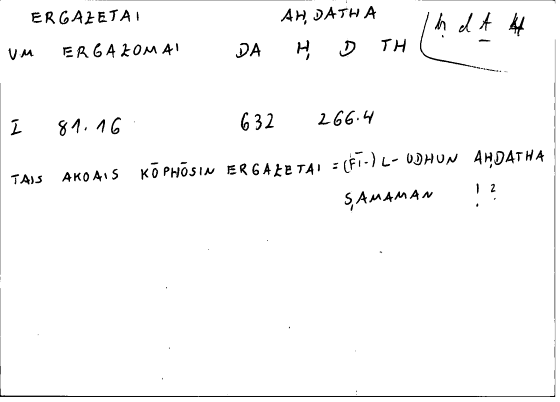 ERGAZETAI AH,DATHA
VM ERGAZOMAI DA H, D TH h, d A
I 81.16 632 266.4
TAIS AKOAIS KŌPHŌSIN ERGAZETAI = (FĪ-) L-UDHUN AH,DATHA
S,AMAMAN ! ?